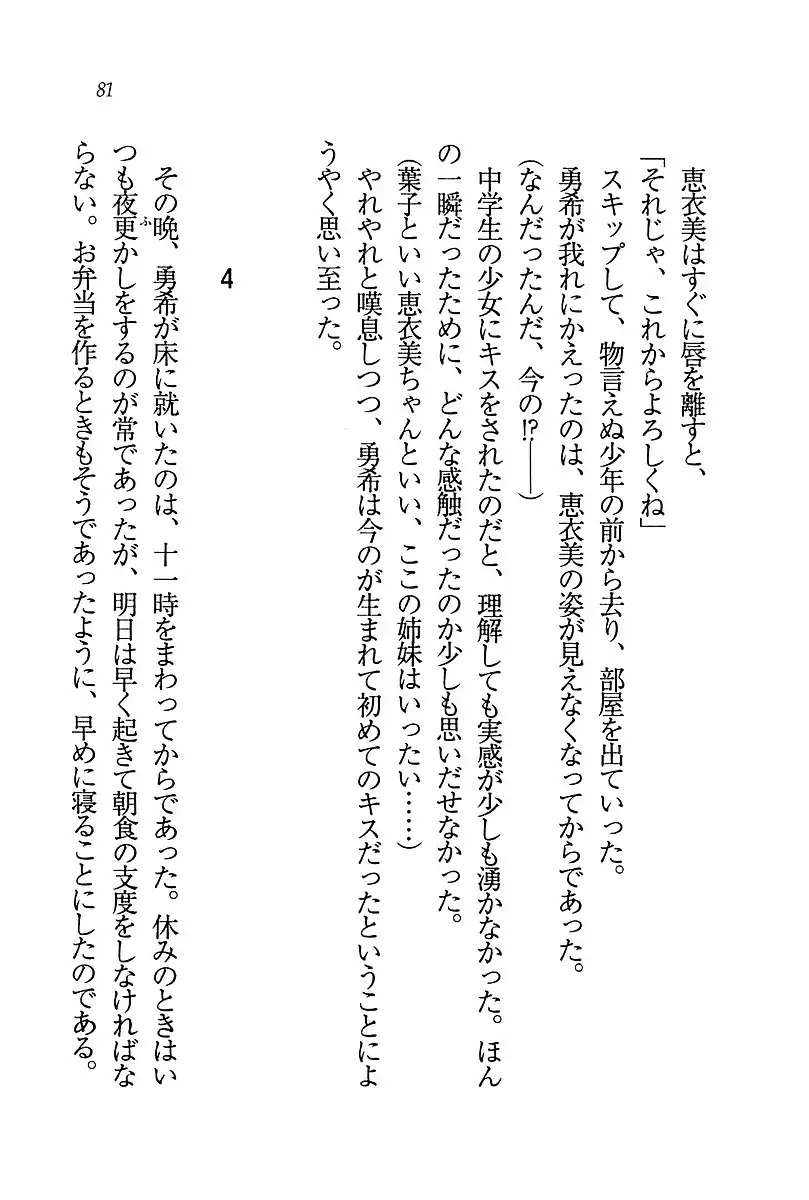 81
恵衣美はすぐに唇を離すと、
「それじゃ、これからよろしくね」
スキップして、物言えぬ少年の前から去り、部屋を出ていった。
勇希が我れにかえったのは、恵衣美の姿が見えなくなってからであった。
(なんだったんだ、今の!?――)
中学生の少女にキスをされたのだと、理解しても実感が少しも湧かなかった。ほん
の一瞬だったために、どんな感触だったのか少しも思いだせなかった。
(葉子といい恵衣美ちゃんといい、ここの姉妹はいったい……)
やれやれと嘆息しつつ、勇希は今のが生まれて初めてのキスだったということによ
うやく思い至った。
4
その晩、勇希が床に就いたのは、十一時をまわってからであった。休みのときはい
つも夜更かしをするのが常であったが、明日は早く起きて朝食の支度をしなければな
ふ
らない。お弁当を作るときもそうであったように、早めに寝ることにしたのである。